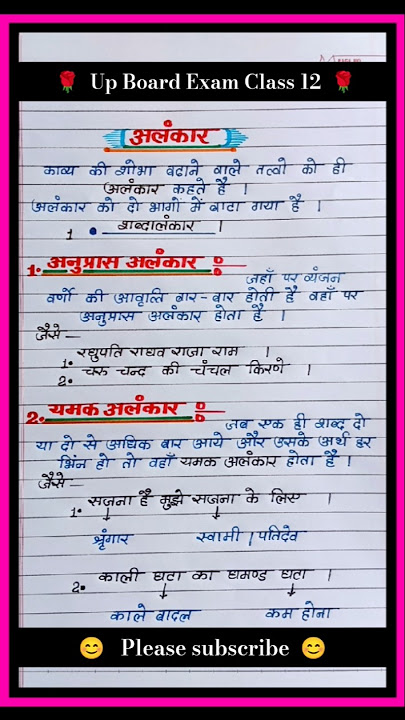 🌹 Up Board Exam Class 12 🌹
अलंकार
काव्य की शोभा बढाने वाले तत्वो को ही
अलंकार कहते है ।
अलंकार को दो भागों में बाटा गया है ।
1 • शब्दालंकार ।
1. अनुप्रास अलंकार
जहाँ पर व्यंजन
वर्णो की आवृति बार-बार होती है वहाँ पर
अनुप्रास अलंकार होता है ।
जैसे—
1• रघुपति राघव राजा राम ।
2• चरु चन्द की चंचल किरणे ।
2. यमक अलंकार
जब एक ही शब्द दो
या दो से अधिक बार आये और उसके अर्थ हर
भिंन हो तो वहाँ यमक अलंकार होता है ।
जैसे—
1• सजना है मुझे सजना के लिए ।
श्रृंगार स्वामी । पतिदेव
2• काली घटा का घमण्ड घटा ।
काले बादल कम होना
😊 Please subscribe 😊